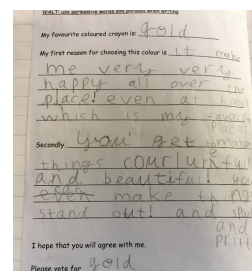 WALT: use persuasive words and phrases when writing
My favourite coloured crayon is: gold
My first reason for choosing this colour is It make
me very very
happy all over the
place! even at hom
which is my favour
place
Secondly, you get make
things courlunful
and beautiful!
even make thing
stand out! and
and
I hope that you will agree with me.
Please vote for gold